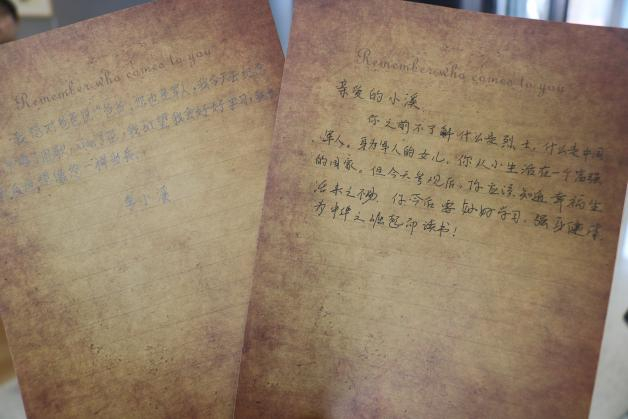 Remember who comes to you
我想对爸爸说“爸爸,您也是军人,我今天去
我会好好学习,
一样当兵。
Remember who comes to you
亲爱的小溪:
你之前不了解什么是烈士,什么是中国
军人。身为军人的女儿,你从小生活在一个富强
的国家。但今天参观后,你应该知道幸福生
活来之不易。你今后要好好学习,强身健体
为中华之崛起而读书!